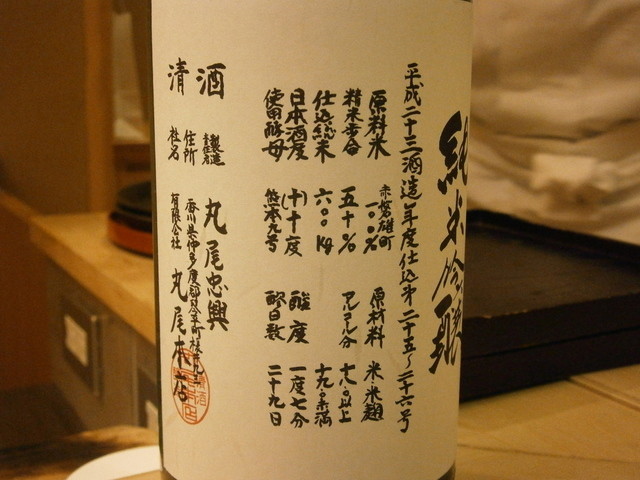 純米吟醸
平成二十三酒造年度仕込第二十五~二十六号
原料米 赤磐雄町一〇〇% 原材料 米・米麹
精米歩合 五十% アルコール分 十八・〇以上
仕込総米 六〇〇kg 十九・〇未満
日本酒度 (+)十度 酸度 一度七分
使用酵母 熊本九号 醪日数 二十九日
酒 製造 丸尾忠興
清
住所 香川県仲多度郡琴平町
社名 有限会社 丸尾本店